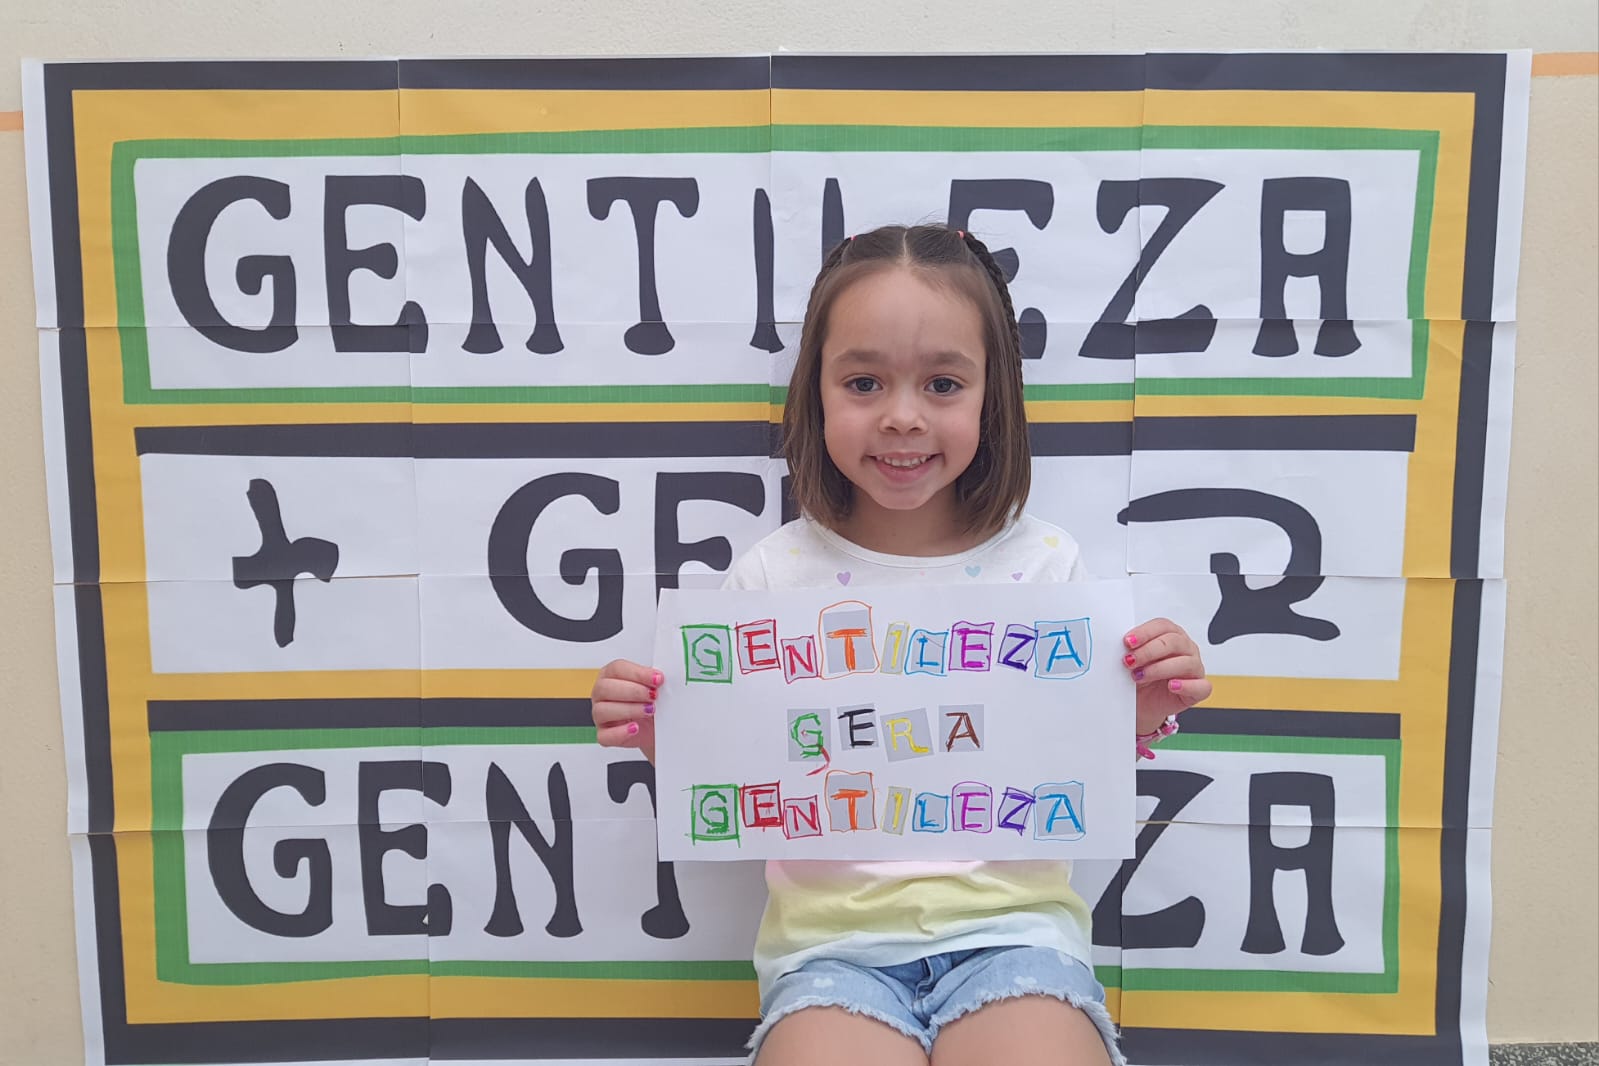 GENTILEZA
+ GE R
GENT ZA
GENTILEZA
GERA
GENTILEZA